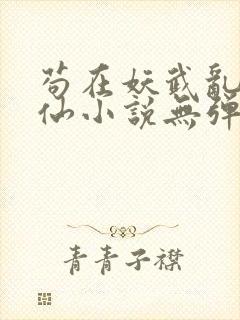 苟在妖武亂
仙小說無彈
青青子襟